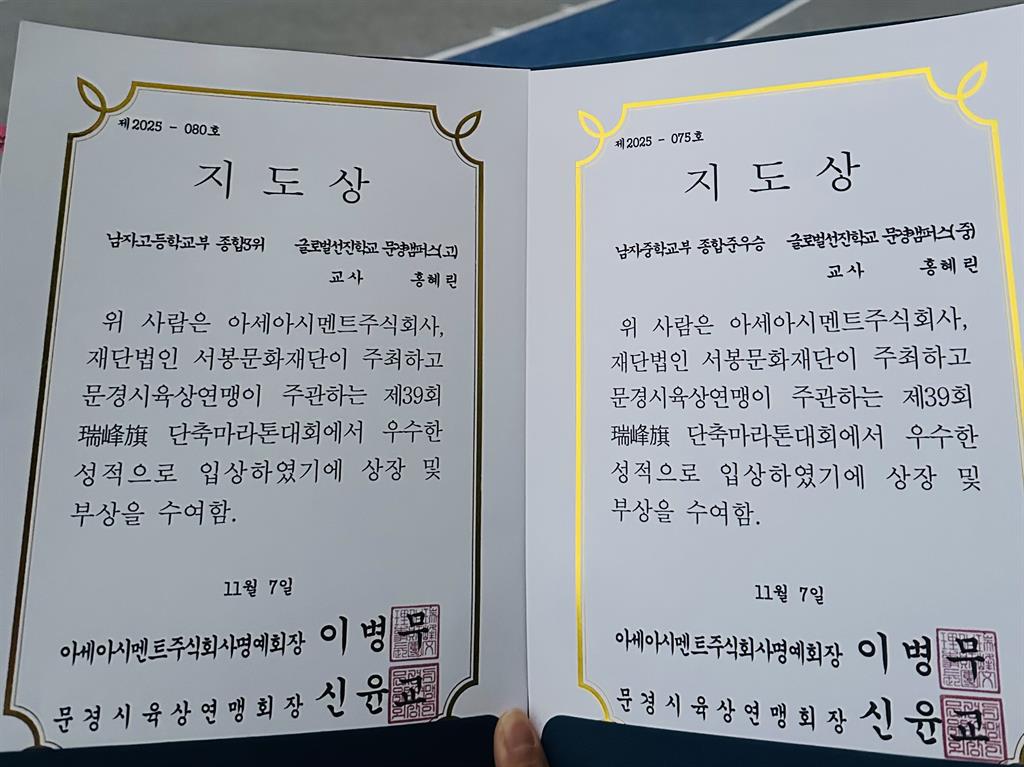 제2025 - 080호
지 도 상
남자고등학교부 종합3위 글로벌선진학교 문경캠퍼스(고)
교사 홍혜린
위 사람은 아세아시멘트주식회사,
재단법인 서봉문화재단이 주최하고
문경시육상연맹이 주관하는 제39회
瑞峰旗 단축마라톤대회에서 우수한
성적으로 입상하였기에 상장 및
부상을 수여함.
11월 7일
아세아시멘트주식회사명예회장 이병무
문경시육상연맹회장 신윤교
제2025 - 075호
지 도 상
남자중학교부 종합준우승 글로벌선진학교 문경캠퍼스(중)
교사 홍혜린
위 사람은 아세아시멘트주식회사,
재단법인 서봉문화재단이 주최하고
문경시육상연맹이 주관하는 제39회
瑞峰旗 단축마라톤대회에서 우수한
성적으로 입상하였기에 상장 및
부상을 수여함.
11월 7일
아세아시멘트주식회사명예회장 이병무
문경시육상연맹회장 신윤교